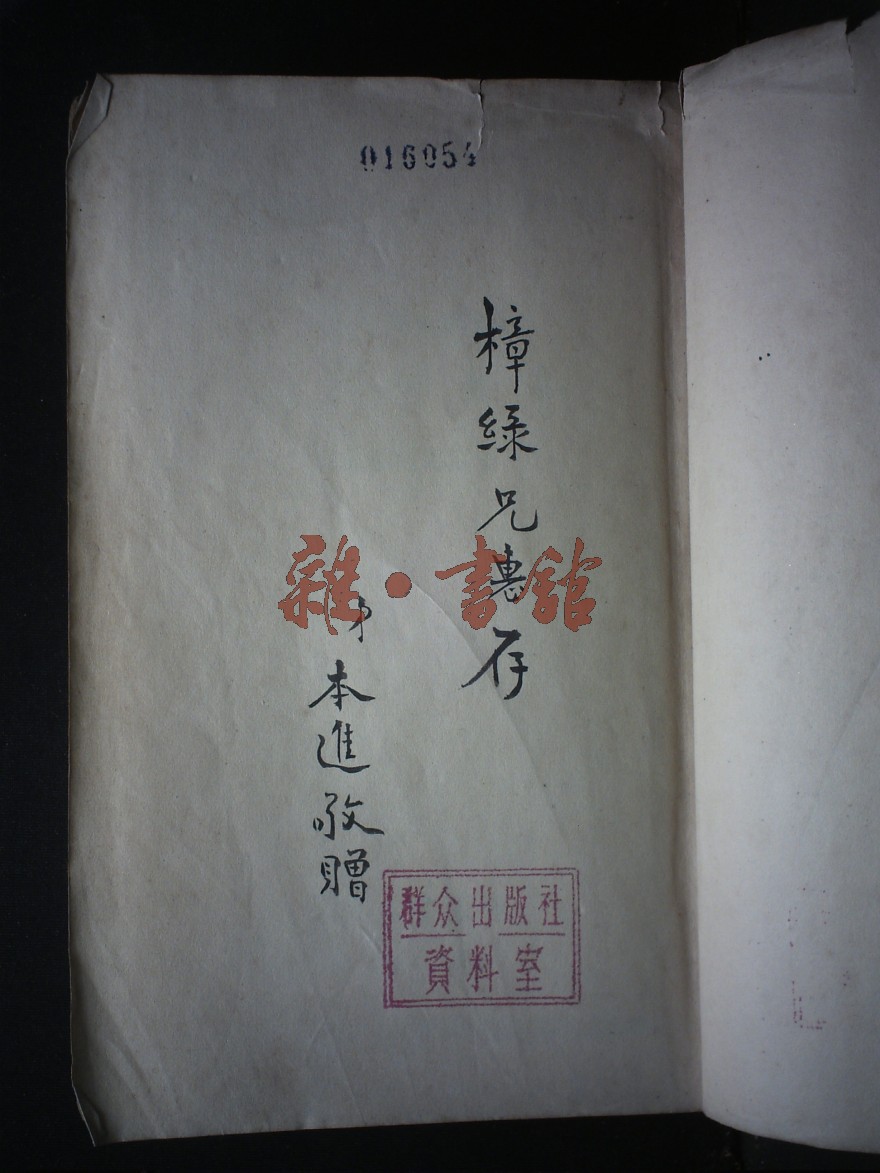 016054
樟綠兄惠存
弟本進敬贈
雜·書館
群众出版社
資料室